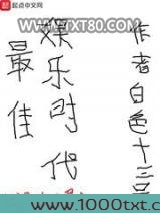 起点中文网
WWW.TXT80.COM
最佳
娱乐时代
作者白色十三号
www.1000txt.c